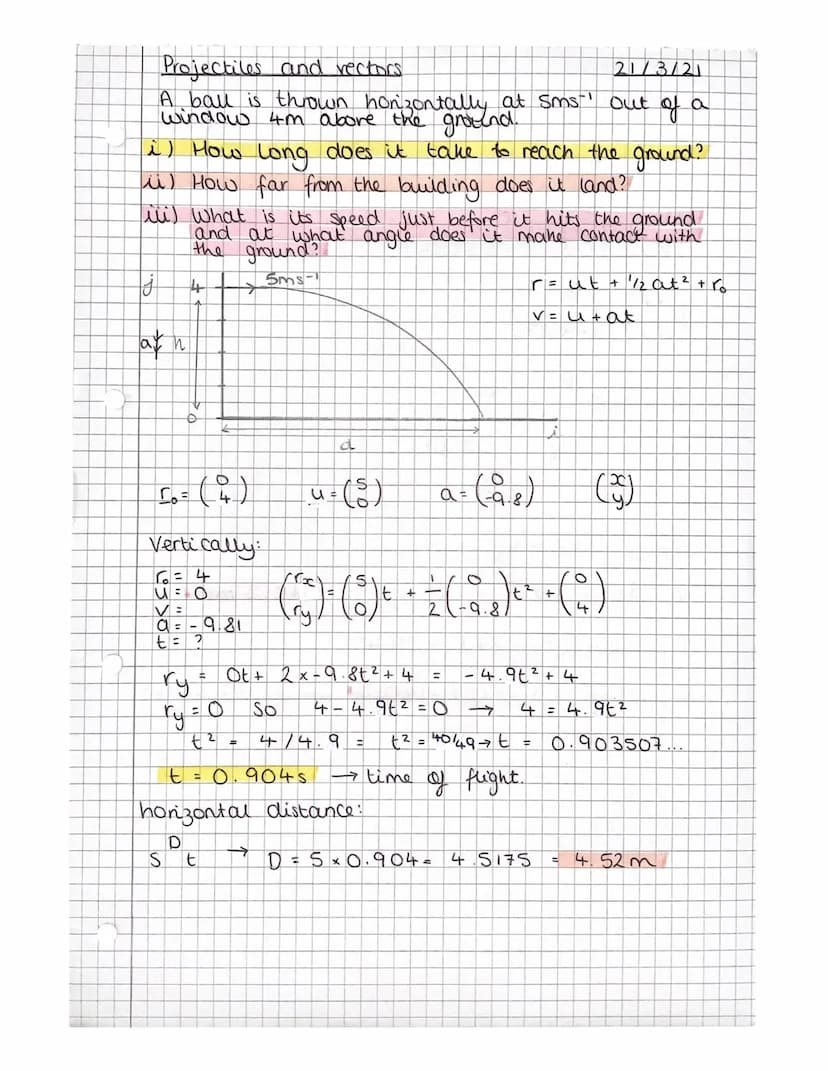 Projectiles and vectors 21/3/21
A ball is thrown horizontally at 5ms⁻¹ out of a
window 4m above the ground.
i) How long does it take to reach the ground?
ii) How far from the building does it land?
iii) What is its speed just before it hits the ground
and at what angle does it make contact with
the ground?
j 4 5ms⁻¹ r = ut + ½at² + r₀
v = u + at
a↓ h
0 i
d
r₀ = (0 4) u = (5 0) a = (0 -9.8) (x y)
Vertically:
r₀ = 4
u = 0
v =
a = -9.81
t = ?
(rx ry) = (5 0)t + 1/2 (0 -9.8)t² + (0 4)
ry = 0t + 2 x -9.8t² + 4 = -4.9t² + 4
ry = 0 so 4 - 4.9t² = 0 → 4 = 4.9t²
t² = 4/4.9 = t² = 40/49 → t = 0.903507...
t = 0.904s → time of flight.
horizontal distance:
D
S t → D = 5 x 0.904 = 4.5175 = 4.52m